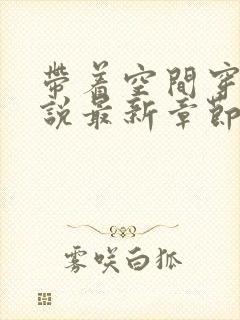 帶着空間穿
說最新章節
雾咲白狐